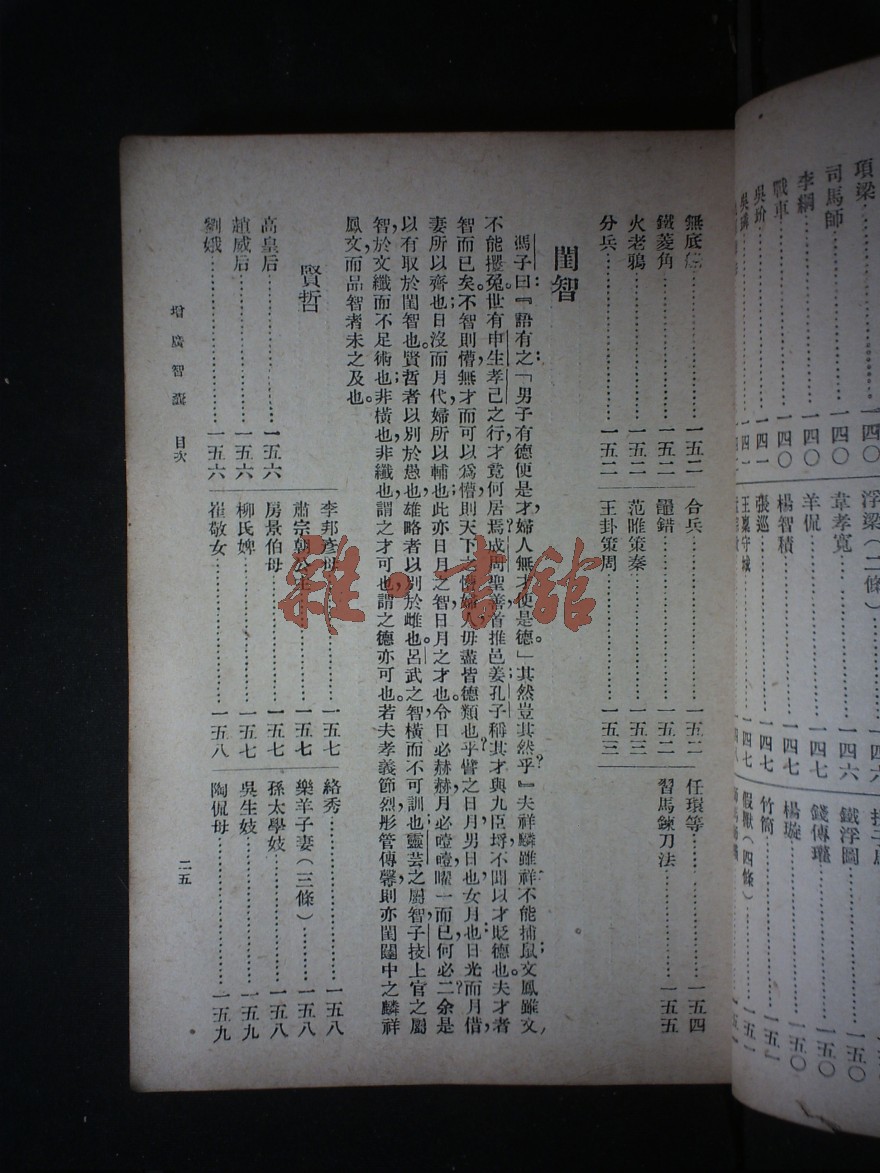 項梁……一四〇
司馬師……一四〇
李綱……一四〇
戰車……一四〇
吳玠……一四一
浮梁(二條)……一四六
韋孝寬……一四六
羊侃……一四六
楊智積……一四七
張巡……一四七
王稟守城……一四七
鐵浮圖……一五〇
錢傳瓘……一五〇
楊璇……一五〇
竹筒……一五一
假獸(四條)……一五一
無底……一五二
鐵菱角……一五二
火老鴉……一五二
分兵……一五二
合兵……一五二
鼂錯……一五二
范雎策秦……一五三
王卦策周……一五三
任瓌等……一五四
習馬鍊刀法……一五五
閨智
馮子曰:『語有之:「男子有德便是才,婦人無才便是德。」其然豈其然乎?』夫祥麟雖祥,不能捕鼠;文鳳雖文,
不能攫兔。世有申生孝己之行,才竟何居焉?成周聖善,首推邑姜,孔子稱其才與九臣埒,不聞以才貶德也。夫才者,
智而已矣,不智則懵,無才而可以爲懵,則天下之懵婦人毋盡皆德類也乎?譬之日月,男日也,女月也;日光而月借,
妻所以齊也;日沒而月代,婦所以輔也;此亦日月之智,日月之才也。今日必赫赫,月必曀曀,曜一而已,何必二?余是
以有取於閨智也。賢哲者以別於愚也,雄略者以別於雌也。呂武之智橫而不可訓也,靈芸之屬智于技,上官之屬
智於文,纖而不足術也;非橫也,非纖也,謂之才可也,謂之德亦可也。若夫孝義節烈,彤管傳馨,則亦閨闥中之麟祥
鳳文,而品智者未之及也。
賢哲
高皇后……一五六
趙威后……一五六
劉娥……一五六
李邦彥母……一五七
肅宗朝公主……一五七
房景伯母……一五七
柳氏婢……一五七
崔敬女……一五八
絡秀……一五八
樂羊子妻(三條)……一五八
孫太學妓……一五八
吳生妓……一五九
陶侃母……一五九
增廣智囊 目次
二五
雜·書舘